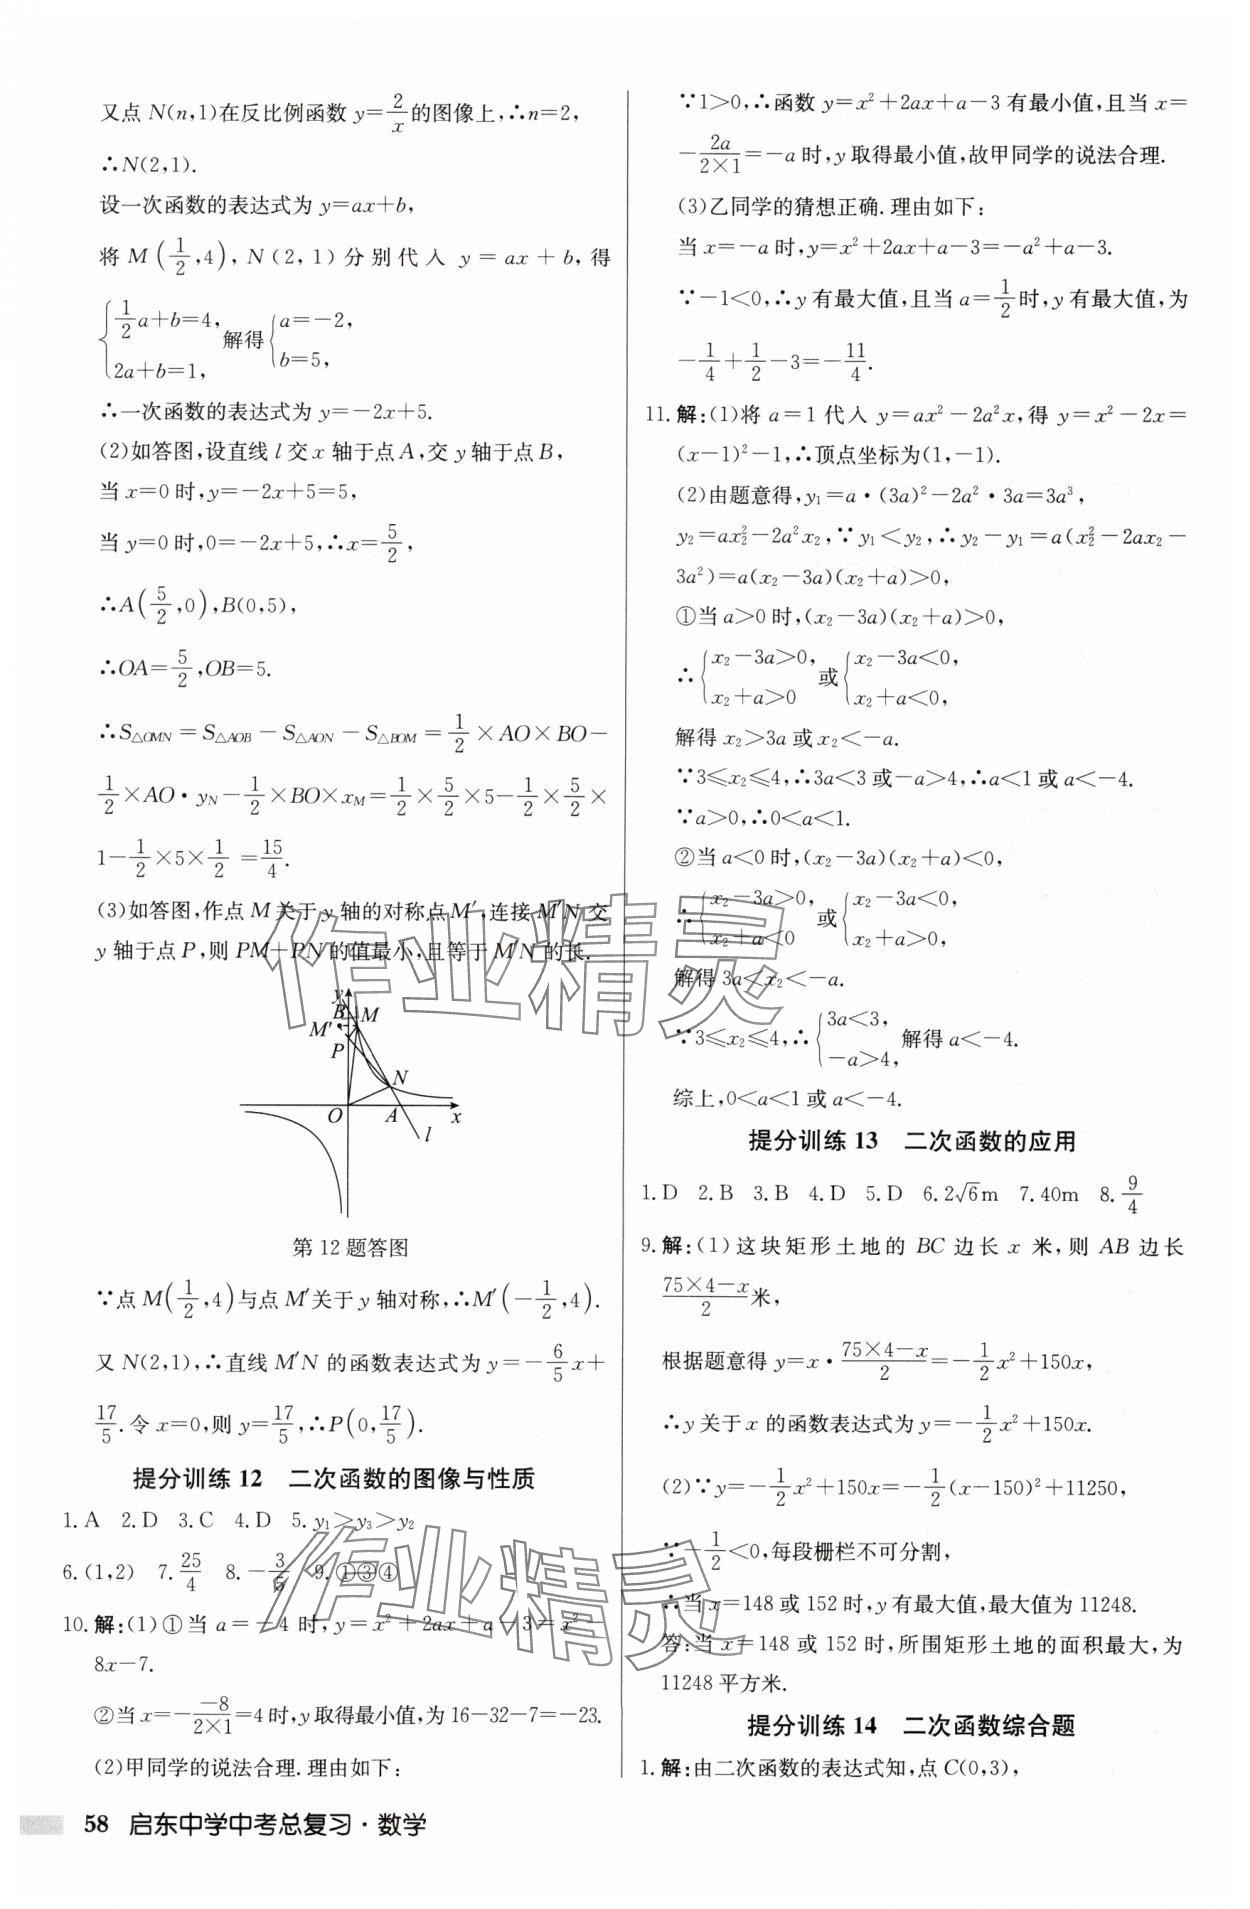 又点 N(n,1)在反比例函数 y=2/x 的图像上,∴n=2,
∴N(2,1).
设一次函数的表达式为 y=ax+b,
将 M(1/2,4), N(2,1)分别代入 y=ax+b,得
{1/2a+b=4, 2a+b=1, 解得{a=-2, b=5,
∴一次函数的表达式为 y=-2x+5.
(2)如答图,设直线 l 交 x 轴于点 A,交 y 轴于点 B,
当 x=0 时,y=-2x+5=5,
当 y=0 时,0=-2x+5,∴x=5/2,
∴A(5/2,0),B(0,5),
∴OA=5/2,OB=5.
∴S△OMN=S△AOB-S△AON-S△BOM=1/2×AO×BO-
1/2×AO·yN-1/2×BO×xM=1/2×5/2×5-1/2×5/2×
1-1/2×5×1/2=15/4.
(3)如答图,作点 M 关于 y 轴的对称点 M′,连接 M′N 交
y 轴于点 P,则 PM+PN 的值最小,且等于 M′N 的长.
y
B
M′ M
P
N
O A x
l
第 12 题答图
∵点 M(1/2,4)与点 M′关于 y 轴对称,∴M′(-1/2,4).
又 N(2,1),∴直线 M′N 的函数表达式为 y=-6/5x+
17/5.令 x=0,则 y=17/5,∴P(0,17/5).
提分训练 12 二次函数的图像与性质
1.A 2.D 3.C 4.D 5.y₁>y₃>y₂
6.(1,2) 7.25/4 8.-3/5 9.①③④
10.解:(1)①当 a=-4 时,y=x²+2ax+a-3=x²-
8x-7.
②当 x=-(-8)/(2×1)=4 时,y 取得最小值,为 16-32-7=-23.
(2)甲同学的说法合理.理由如下:
∵1>0,∴函数 y=x²+2ax+a-3 有最小值,且当 x=
-2a/(2×1)=-a 时,y 取得最小值,故甲同学的说法合理.
(3)乙同学的猜想正确.理由如下:
当 x=-a 时,y=x²+2ax+a-3=-a²+a-3.
∵-1<0,∴y 有最大值,且当 a=1/2 时,y 有最大值,为
-1/4+1/2-3=-11/4.
11.解:(1)将 a=1 代入 y=ax²-2a²x,得 y=x²-2x=
(x-1)²-1,∴顶点坐标为(1,-1).
(2)由题意得,y₁=a·(3a)²-2a²·3a=3a³,
y₂=ax₂²-2a²x₂,∵y₁<y₂,∴y₂-y₁=a(x₂²-2ax₂-
3a²)=a(x₂-3a)(x₂+a)>0,
①当 a>0 时,(x₂-3a)(x₂+a)>0,
∴{x₂-3a>0, x₂+a>0 或{x₂-3a<0, x₂+a<0,
解得 x₂>3a 或 x₂<-a.
∵3≤x₂≤4,∴3a<3 或-a>4,∴a<1 或 a<-4.
∵a>0,∴0<a<1.
②当 a<0 时,(x₂-3a)(x₂+a)<0,
∴{x₂-3a>0, x₂+a<0 或{x₂-3a<0, x₂+a>0,
解得 3a<x₂<-a.
∵3≤x₂≤4,∴{3a<3, -a>4, 解得 a<-4.
综上,0<a<1 或 a<-4.
提分训练 13 二次函数的应用
1.D 2.B 3.B 4.D 5.D 6.2√6m 7.40m 8.9/4
9.解:(1)这块矩形土地的 BC 边长 x 米,则 AB 边长
(75×4-x)/2米,
根据题意得 y=x·(75×4-x)/2=-1/2x²+150x,
∴y 关于 x 的函数表达式为 y=-1/2x²+150x.
(2)∵y=-1/2x²+150x=-1/2(x-150)²+11250,
∵-1/2<0,每段栅栏不可分割,
∴当 x=148 或 152 时,y 有最大值,最大值为 11248.
答:当 x=148 或 152 时,所围矩形土地的面积最大,为
11248 平方米.
提分训练 14 二次函数综合题
1.解:由二次函数的表达式知,点 C(0,3),
58 启东中学中考总复习·数学
作业精灵
作业精灵